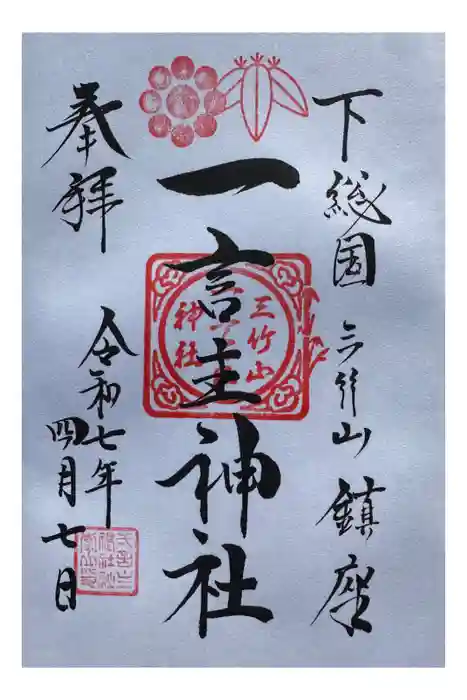 下総国 三竹山 鎮座
一言主神社
三竹山
神社
奉拝
令和七年
四月七日